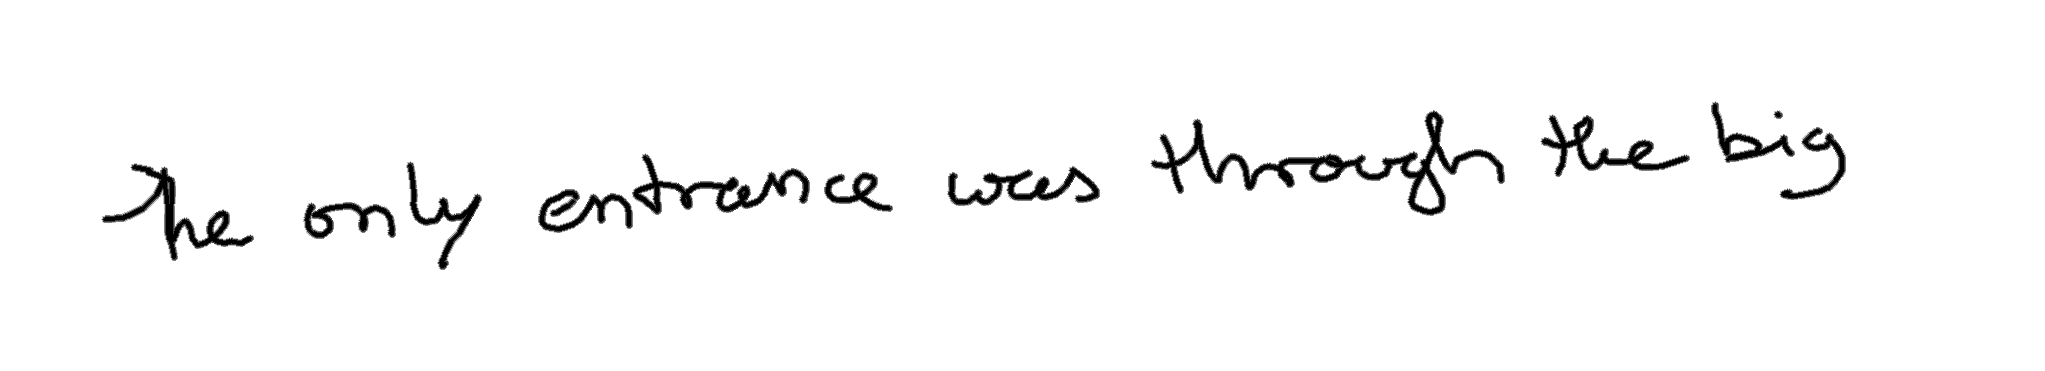 The only entrance was through the big